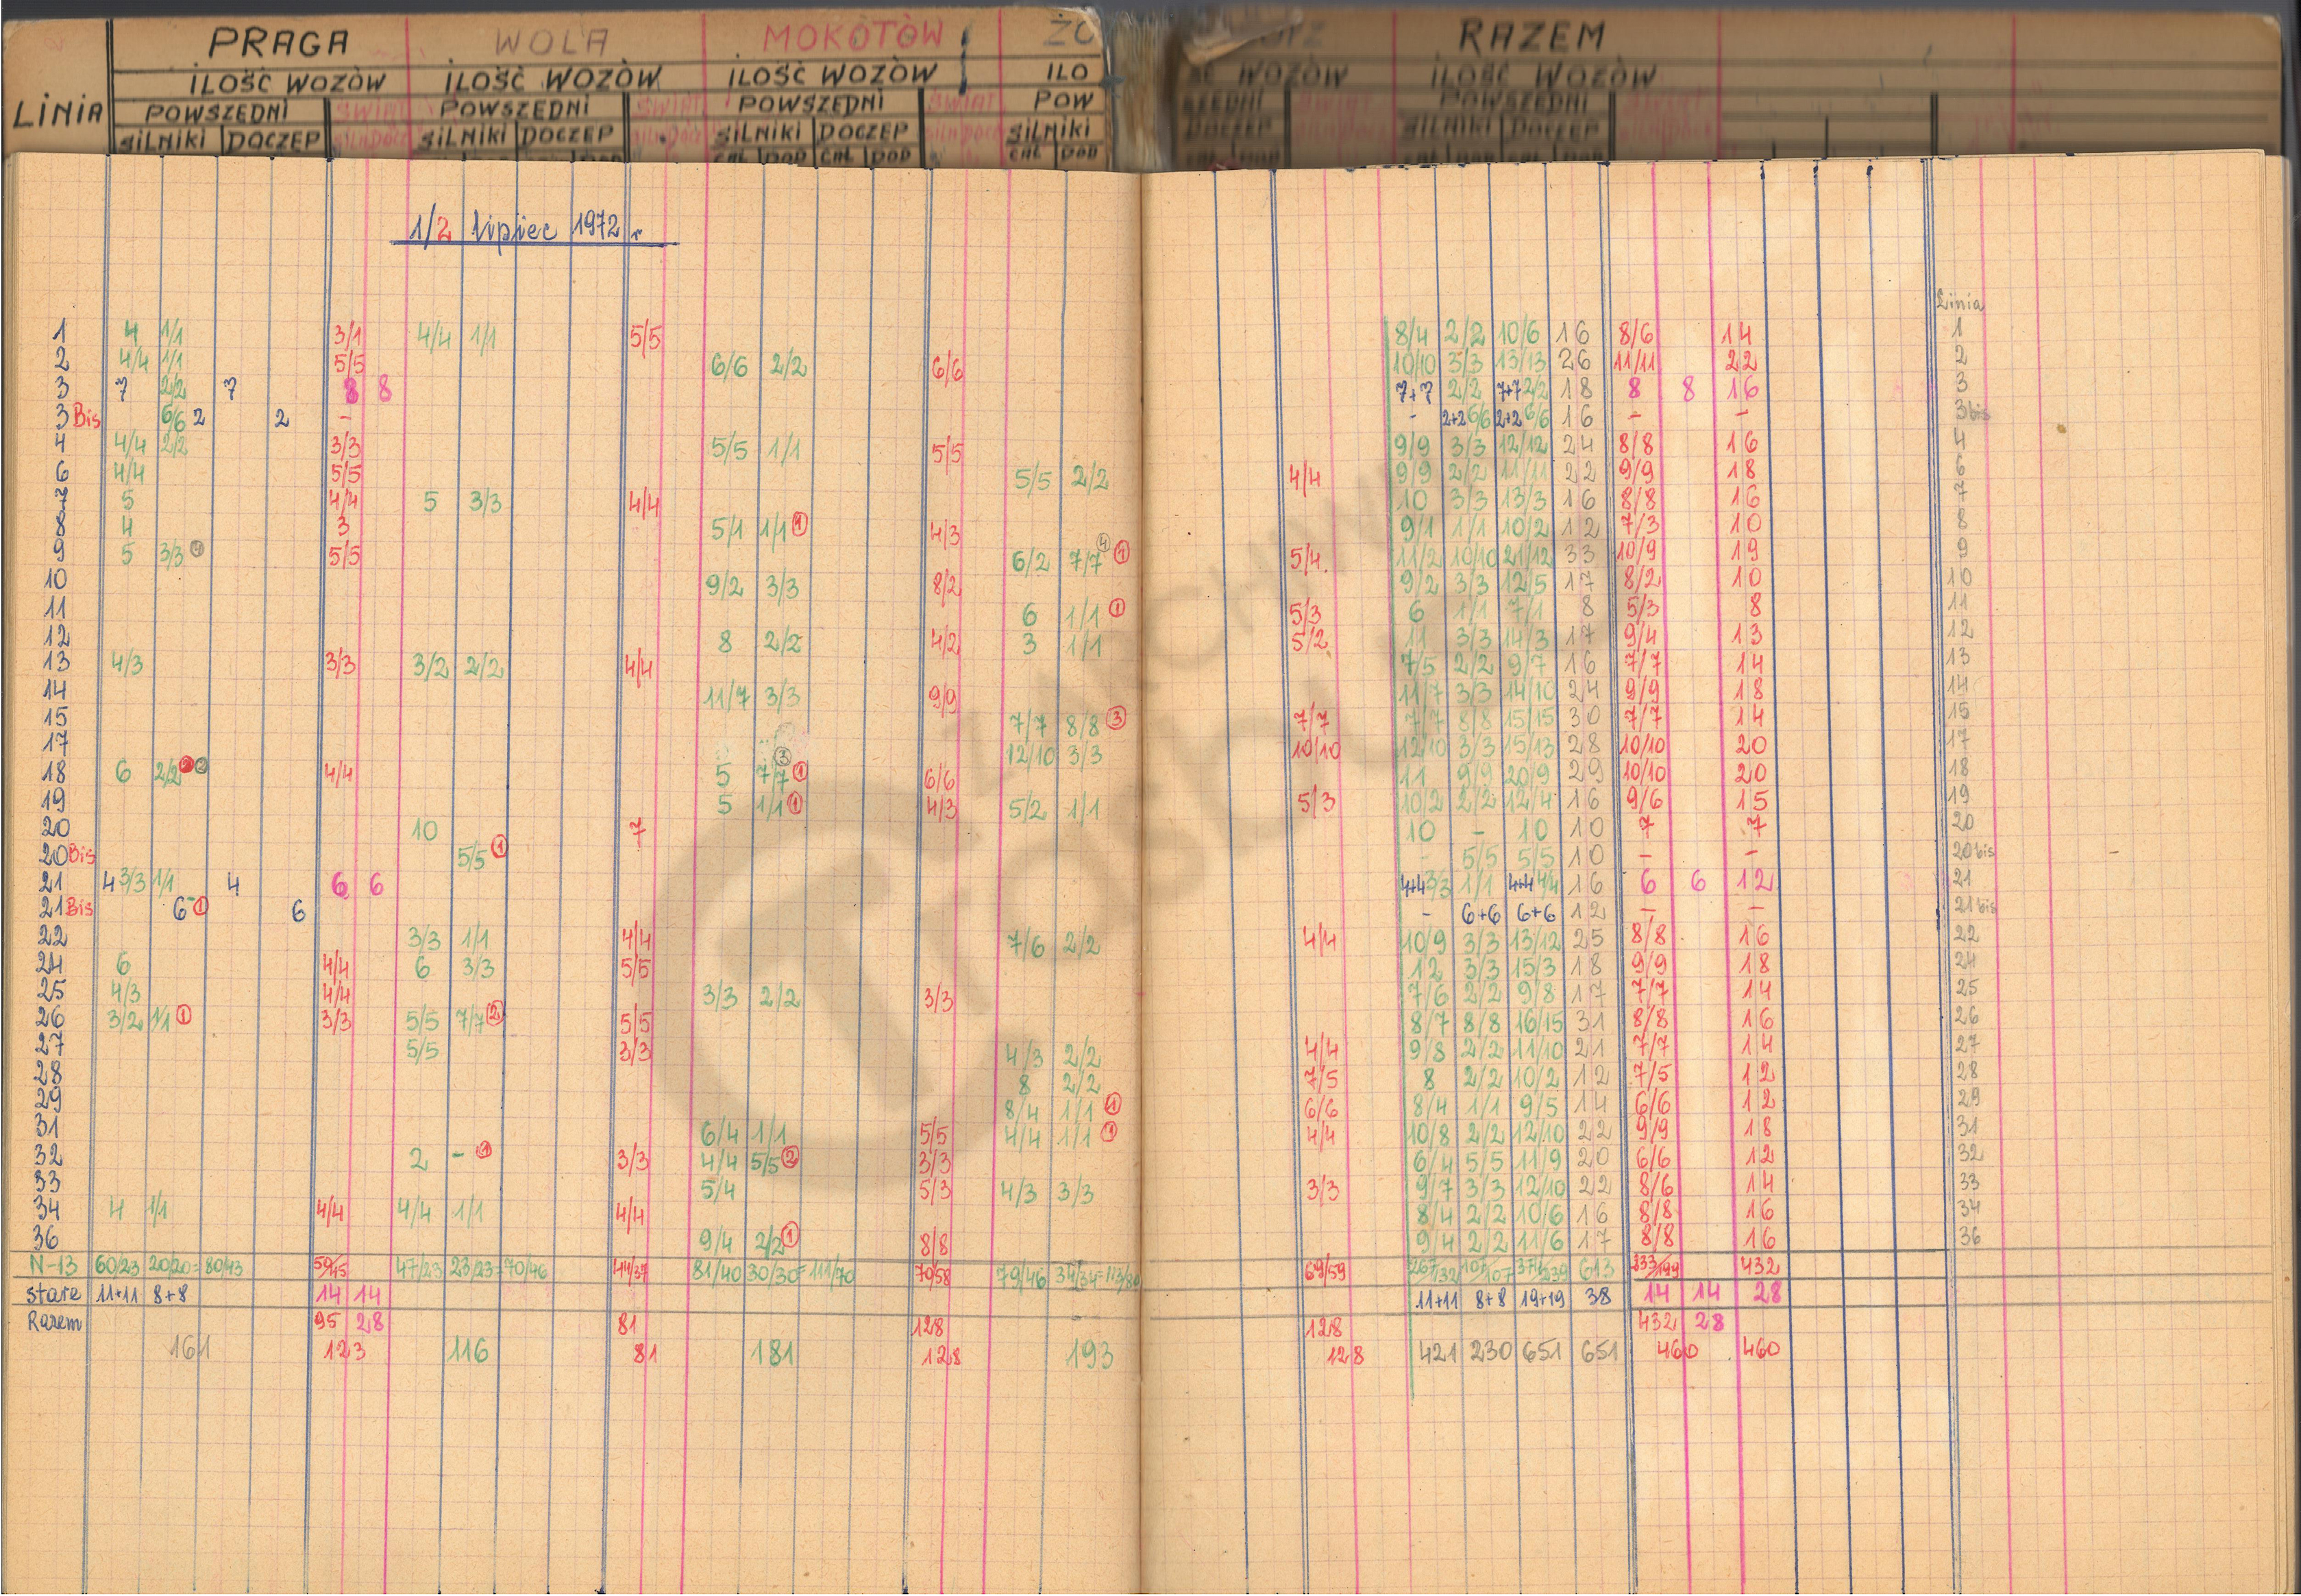 PRAGA WOLA MOKOTÓW ŻO RAZEM
ILOŚĆ WOZÓW ILOŚĆ WOZÓW ILOŚĆ WOZÓW ILO ŚĆ WOZÓW ILOŚĆ WOZÓW
LINIA POWSZEDNI ŚWIĄT POWSZEDNI ŚWIĄT POWSZEDNI ŚWIĄT POW SZEDNI POWSZEDNI
SILNIKI DOCZEP SILNIKI DOCZEP SILNIKI DOCZEP SILNIKI DOCZEP SILNIKI DOCZEP
CAŁ DOD CAŁ DOD CAŁ DOD
1/2 lipiec 1972 r
Linia
1 4 1/1 3/1 4/4 1/1 5/5 8/4 2/2 10/6 16 8/6 14 1
2 4/4 1/1 5/5 6/6 2/2 6/6 10/10 3/3 13/13 26 11/11 22 2
3 7 2/2 7 8 8 7+7 2/2 7+7 2/2 18 8 8 16 3
3 Bis 6/6 2 2 - - 2+2 6/6 2+2 6/6 16 - - 3 bis
4 4/4 2/2 3/3 5/5 1/1 5/5 9/9 3/3 12/12 24 8/8 16 4
6 4/4 5/5 5/5 2/2 4/4 9/9 2/2 11/11 22 9/9 18 6
7 5 4/4 5 3/3 4/4 10 3/3 13/3 16 8/8 16 7
8 4 3 5/1 1/1 1 4/3 9/1 1/1 10/2 12 7/3 10 8
9 5 3/3 4 5/5 6/2 7/7 4 1 5/4 11/2 10/10 21/12 33 10/9 19 9
10 9/2 3/3 8/2 9/2 3/3 12/5 17 8/2 10 10
11 6 1/1 1 5/3 6 1/1 7/1 8 5/3 8 11
12 8 2/2 4/2 3 1/1 5/2 11 3/3 14/3 17 9/4 13 12
13 4/3 3/3 3/2 2/2 4/4 7/5 2/2 9/7 16 7/7 14 13
14 11/7 3/3 9/9 11/7 3/3 14/10 24 9/9 18 14
15 7/7 8/8 3 7/7 7/7 8/8 15/15 30 7/7 14 15
17 12/10 3/3 10/10 12/10 3/3 15/13 28 10/10 20 17
18 6 2/2 2 4/4 5 7/7 3 1 6/6 11 9/9 20/9 29 10/10 20 18
19 5 1/1 1 4/3 5/2 1/1 5/3 10/2 2/2 12/4 16 9/6 15 19
20 10 7 10 - 10 10 7 7 20
20 Bis 5/5 1 - 5/5 5/5 10 - - 20 bis
21 4 3/3 1/1 4 6 6 4+4 3/3 1/1 4+4 4/4 16 6 6 12 21
21 Bis 6 1 6 - 6+6 6+6 12 - - 21 bis
22 3/3 1/1 4/4 7/6 2/2 4/4 10/9 3/3 13/12 25 8/8 16 22
24 6 4/4 6 3/3 5/5 12 3/3 15/3 18 9/9 18 24
25 4/3 4/4 3/3 2/2 3/3 7/6 2/2 9/8 17 7/7 14 25
26 3/2 1/1 1 3/3 5/5 7/7 2 5/5 8/7 8/8 16/15 31 8/8 16 26
27 5/5 3/3 4/3 2/2 4/4 9/8 2/2 11/10 21 7/7 14 27
28 8 2/2 7/5 8 2/2 10/2 12 7/5 12 28
29 8/4 1/1 1 6/6 8/4 1/1 9/5 14 6/6 12 29
31 6/4 1/1 5/5 4/4 1/1 1 4/4 10/8 2/2 12/10 22 9/9 18 31
32 2 - 1 3/3 4/4 5/5 2 3/3 6/4 5/5 11/9 20 6/6 12 32
33 5/4 5/3 4/3 3/3 3/3 9/7 3/3 12/10 22 8/6 14 33
34 4 1/1 4/4 4/4 1/1 4/4 8/4 2/2 10/6 16 8/8 16 34
36 9/4 2/2 1 8/8 9/4 2/2 11/6 17 8/8 16 36
N-13 60/23 20/20= 80/43 50/45 47/23 23/23= 70/46 44/37 81/40 30/30= 111/70 70/58 79/46 34/34= 113/80 69/59 267/132 107/107 374/239 613 233/199 432
Stare 11+11 8+8 14 14 11+11 8+8 19+19 38 14 14 28
Razem 95 28 81 128 128 432 28
161 123 116 81 181 128 193 128 421 230 651 651 460 460